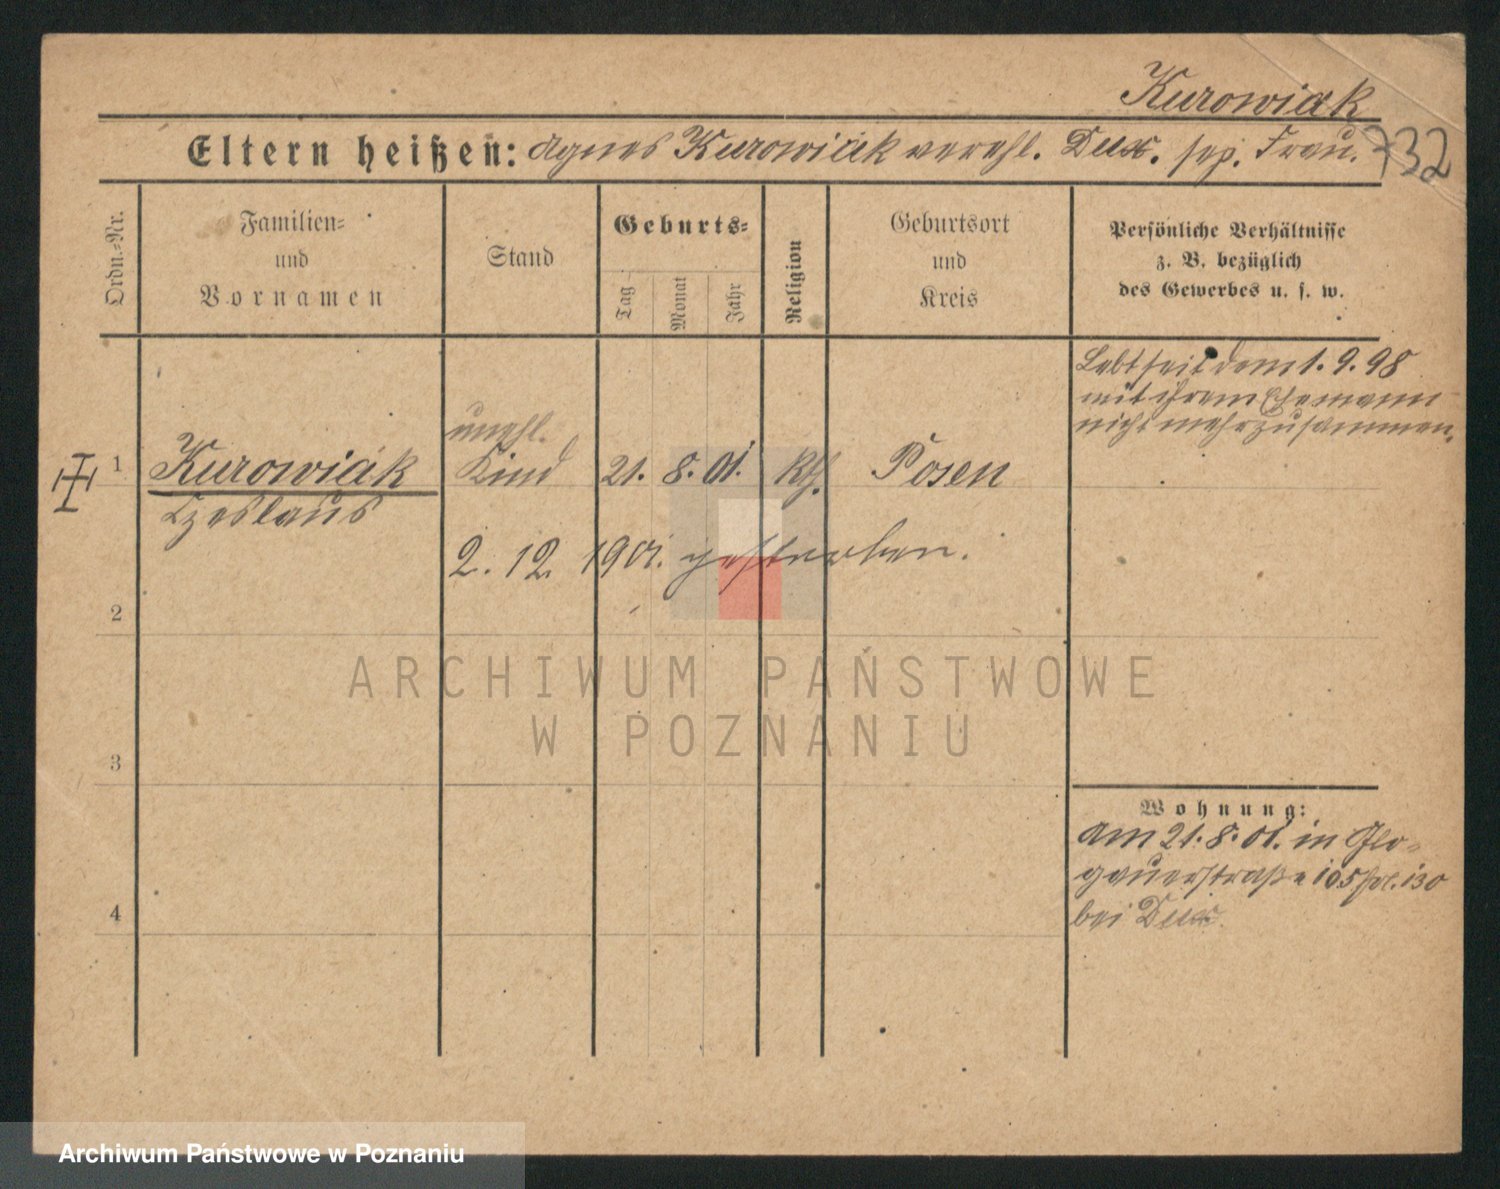 Kurowiak
Eltern heißen: Agnes Kurowiak verehl. Dux. sep. Frau.
732
Ordn.=Nr.
Familien=
und
Vornamen
Stand
Geburts=
Tag
Monat
Jahr
Religion
Geburtsort
und
Kreis
Persönliche Verhältnisse
z. B. bezüglich
des Gewerbes u. s. w.
Lebt seit dem 1. 9. 98
mit ihrem Ehemann
nicht mehr zusammen.
unehl.
1 Kurowiak Kind 21. 8. 01. kth. Posen
Czeslaus
2. 12. 1901. gestorben.
2
ARCHIWUM PAŃSTWOWE
W POZNANIU
3
Wohnung:
Am 21. 8. 01. in Glo-
gauerstraße 105 pol. 130
4
bei Dux
Archiwum Państwowe w Poznaniu